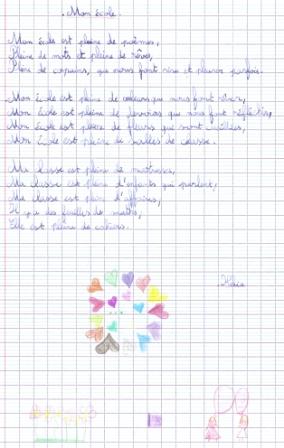 Mon école.
Mon école est pleine de poèmes,
Pleine de mots et pleine de rêves,
Pleine de copains, qui nous font rire et pleurer parfois.
Mon école est pleine de couleurs que nous font rêver,
Mon école est pleine de devoirs que nous font réfléchir,
Mon école est pleine de fleurs qui sont cueillies,
Mon école est pleine de salles de classe.
Ma classe est pleine de maîtresses,
Ma classe est pleine d'enfants qui parlent,
Ma classe est pleine d'affaires,
Il y a des feuilles de maths,
Elle est pleine de cahiers.